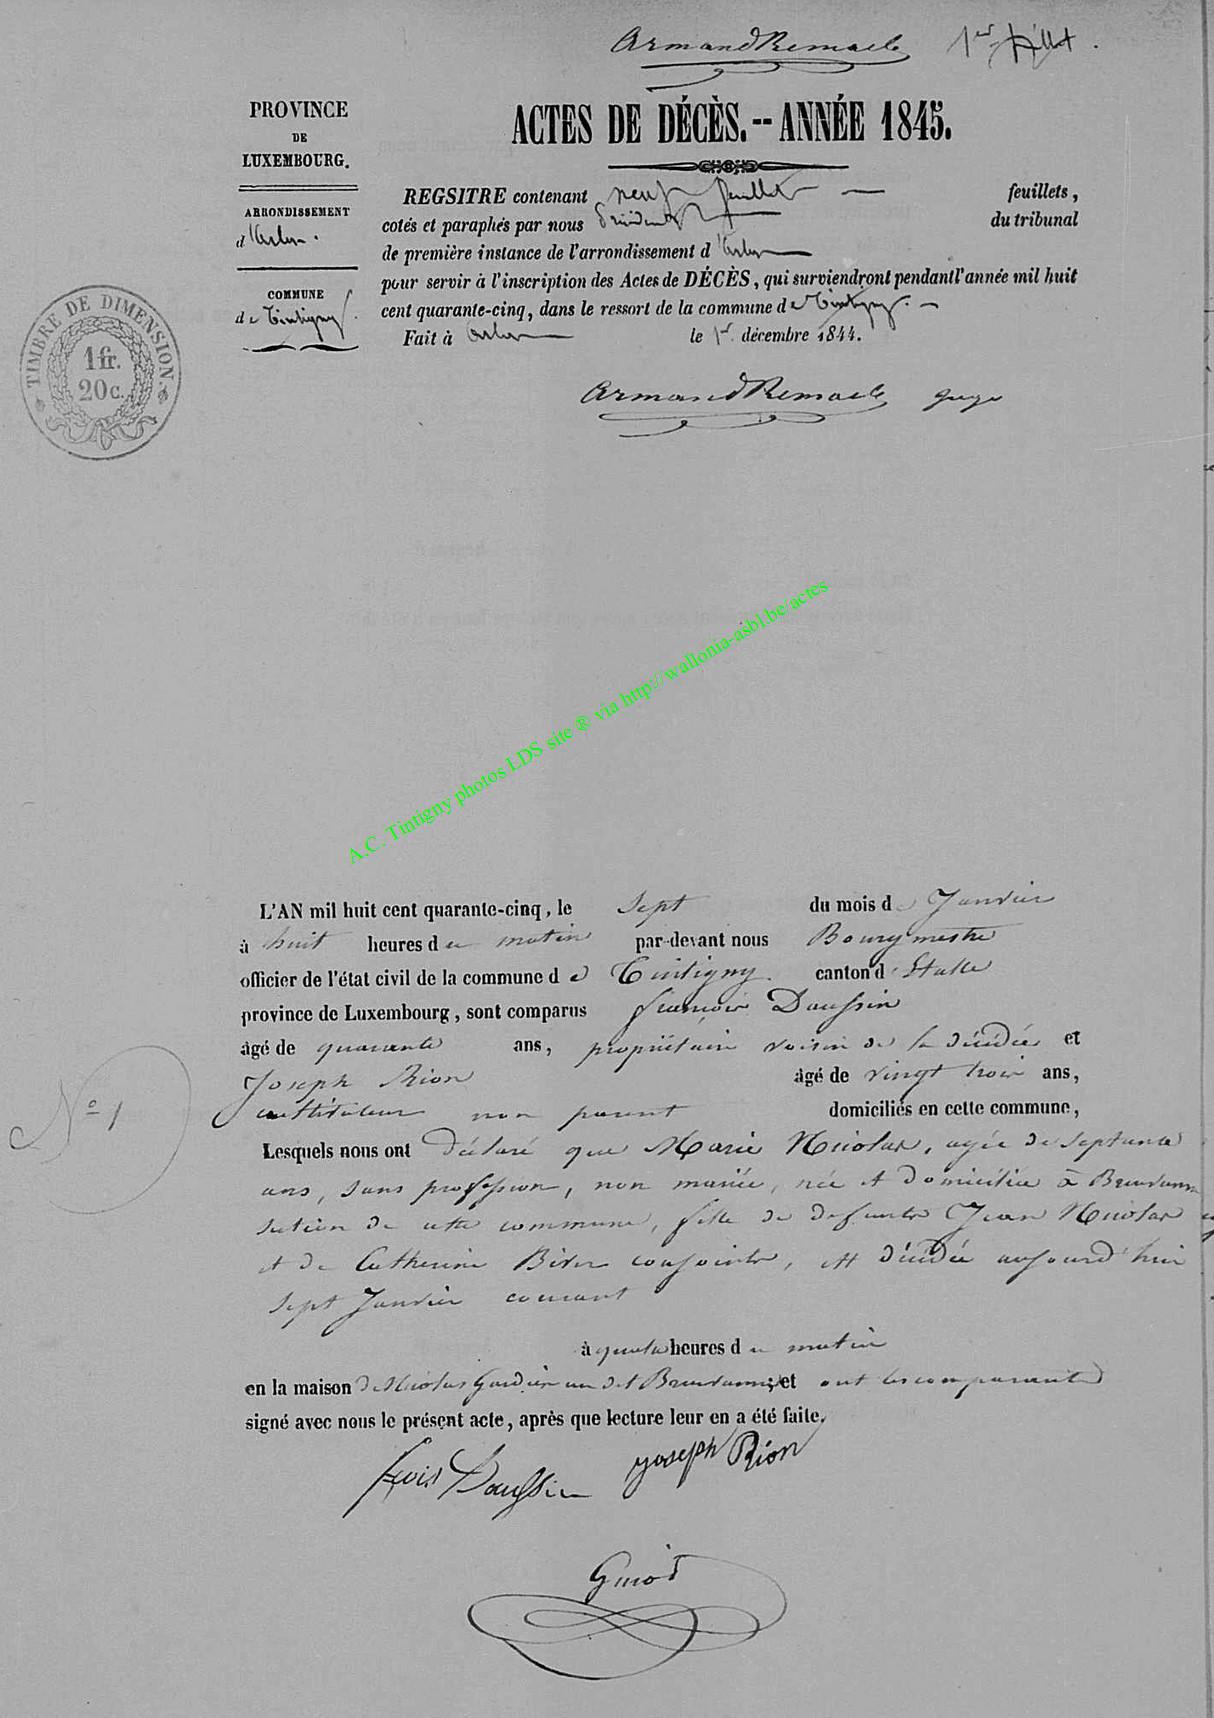 Armand Remacle 1er
PROVINCE
DE
LUXEMBOURG.
ARRONDISSEMENT
d'Arlon.
COMMUNE
de Tintigny
TIMBRE DE DIMENSION.
1fr.
20c.
ACTES DE DÉCÈS.-- ANNÉE 1845.
REGSITRE contenant neuf feuillets — feuillets,
cotés et paraphés par nous Président du tribunal
de première instance de l'arrondissement d'Arlon
pour servir à l'inscription des Actes de DÉCÈS, qui surviendront pendant l'année mil huit
cent quarante-cinq, dans le ressort de la commune de Tintigny. —
Fait à Arlon le 1er décembre 1844.
Armand Remacle
A.C. Tintigny photos LDS site ® via http://wallonia-asbl.be/actes
L'AN mil huit cent quarante-cinq, le sept du mois de Janvier
à huit heures du matin par-devant nous Bourgmestre
officier de l'état civil de la commune de Tintigny canton d'Etalle
province de Luxembourg, sont comparus françois Daussin
âgé de quarante ans, propriétaire voisin de la décédée et
Joseph Rion âgé de vingt trois ans,
instituteur non parent domiciliés en cette commune,
N° 1
Lesquels nous ont déclaré que Marie Nicolas, agée de septante
ans, sans profession, non mariée, née et domiciliée à
section de cette commune, fille de defunts Jean Nicolas
et de Catherine conjoints, est décédée aujourd'hui
sept Janvier courant
à quatre heures du matin
en la maison de Nicolas et ont les comparants
signé avec nous le présent acte, après que lecture leur en a été faite.
fçois Daussin Joseph Rion